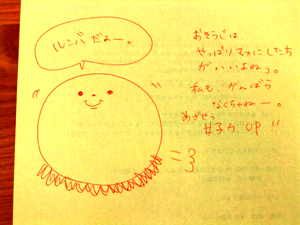 ルンバだよー。
おそうじは
やっぱりマメにしたち
がいいよねっ。
私も、がんばら
なくちゃねー。
めざせっ
女子力 UP !!